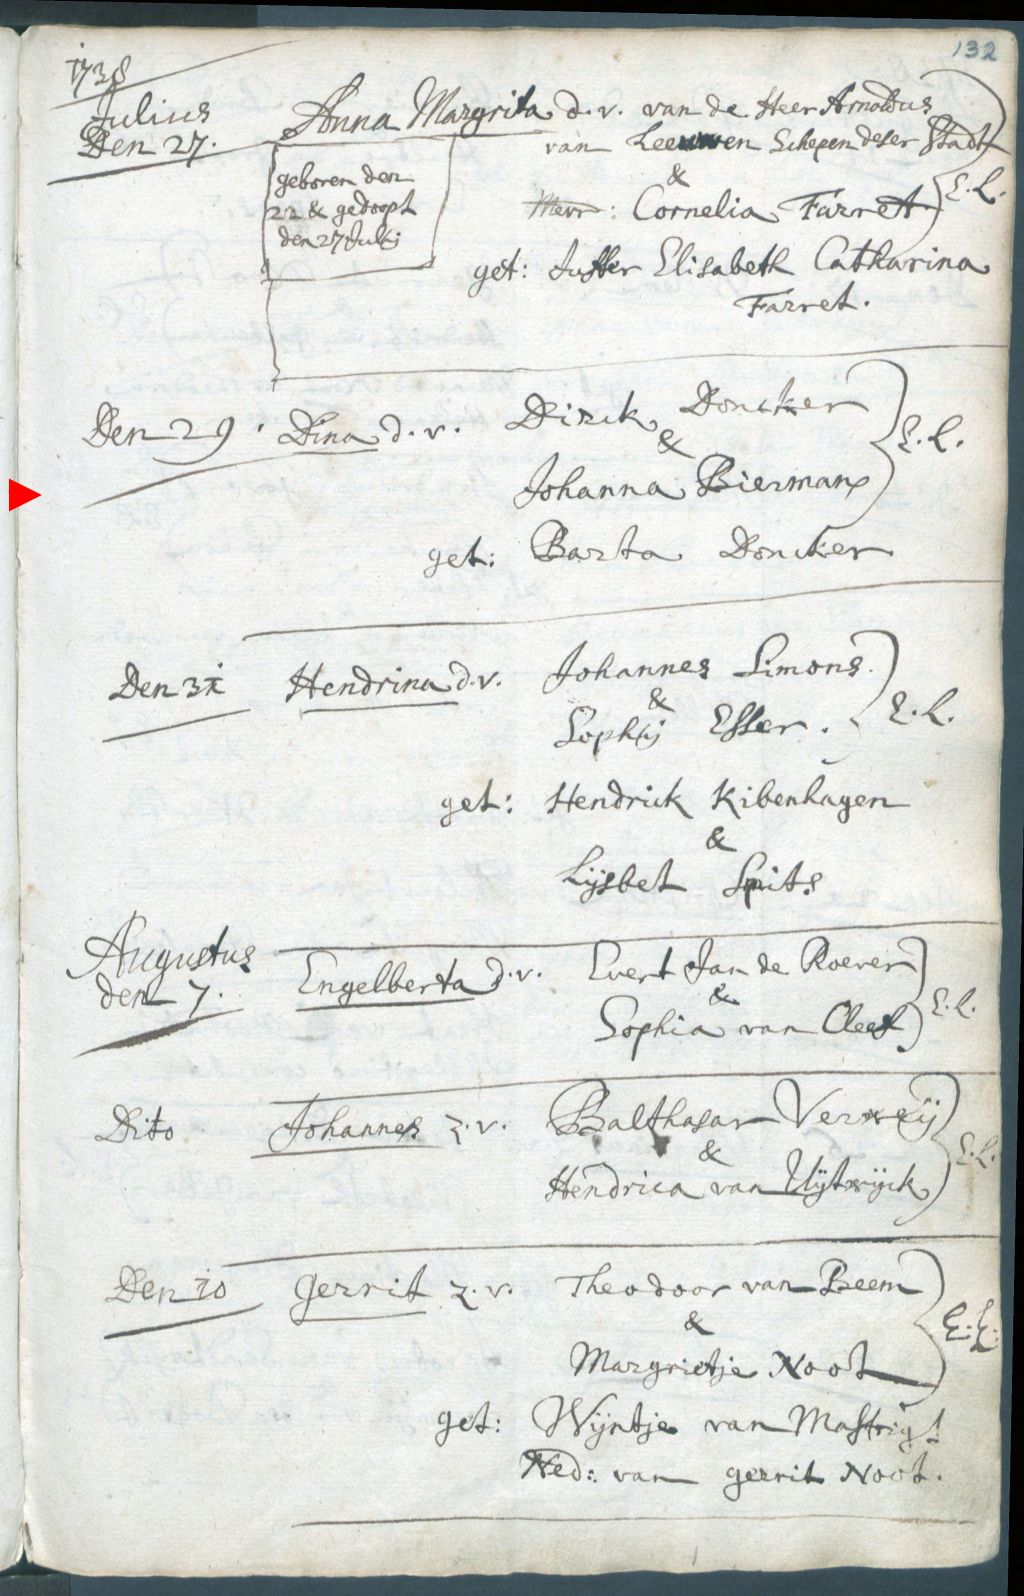 132
1738
Julius
Den 27. Anna Margrita d.v. van de Heer Arnoldus
van Leeuwen Schepen deser Stadt
&
Mevr: Cornelia Farret E.L.
geboren den
22 & gedoopt
den 27 Julij
get: Juffer Elisabeth Catharina
Farret.
Den 29. Dina d.v. Dirck Doncker
& E.L.
Johanna Biermans
get: Barta Doncker
Den 31 Hendrina d.v. Johannes Simons.
& E.L.
Sophij Esser.
get: Hendrick Kibenhagen
&
Lijsbet Spits
Augustus
den 7. Engelberta d.v. Evert Jan de Roever
& E.L.
Sophia van Cleef
Dito Johannes z.v. Balthasar Verweij
& E.L.
Hendrica van Uijtwijck
Den 10 Gerrit z.v. Theodoor van Beem
& E.L.
Margrietje Noot
get: Wijntje van Mastrigt
Wed: van gerrit Noot.